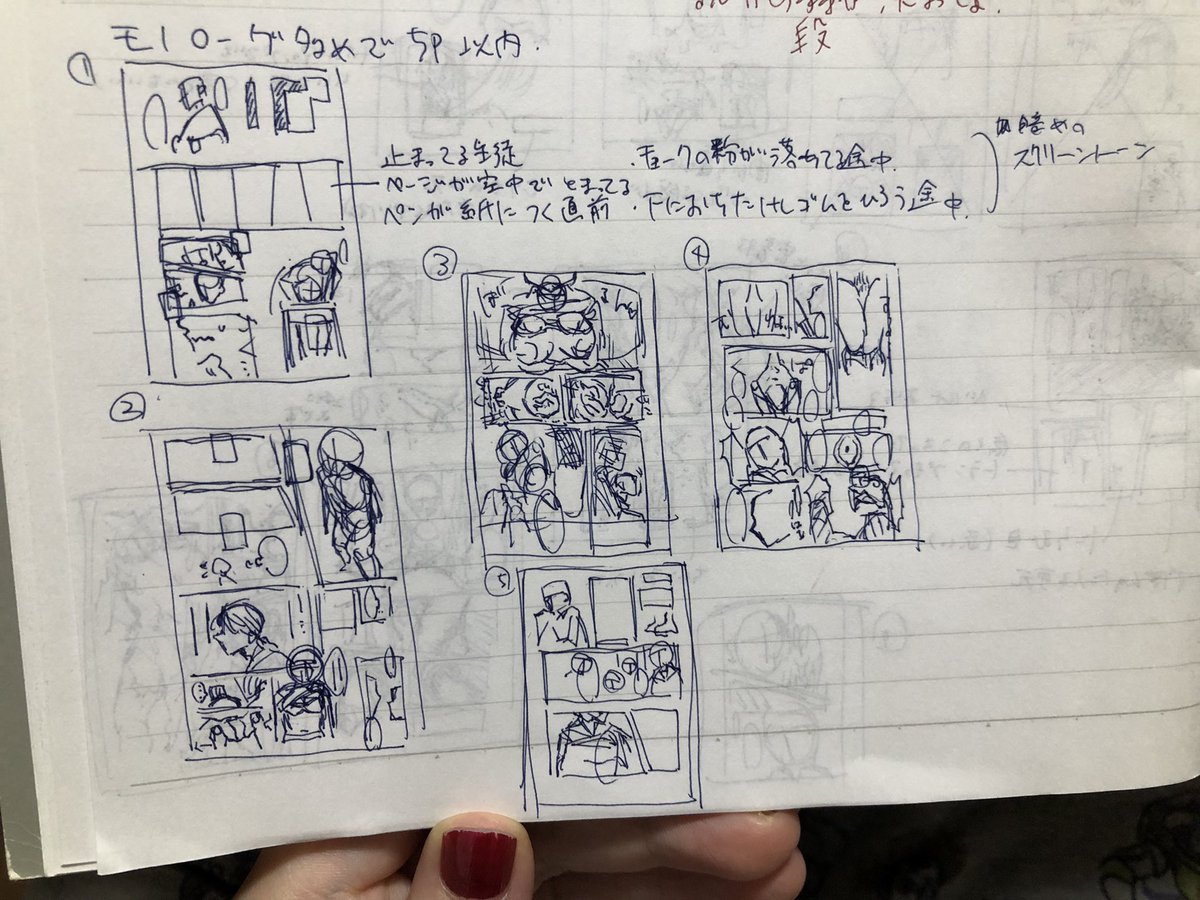 段
モノローグ多めで5P以内.
①
止まってる生徒
ページが空中でとまってる
ペンが紙につく直前
・チョークの粉が落ちてる途中.
・下におちたけしゴムをひろう途中.
暗めの
スクリーントーン
②
③
④
⑤